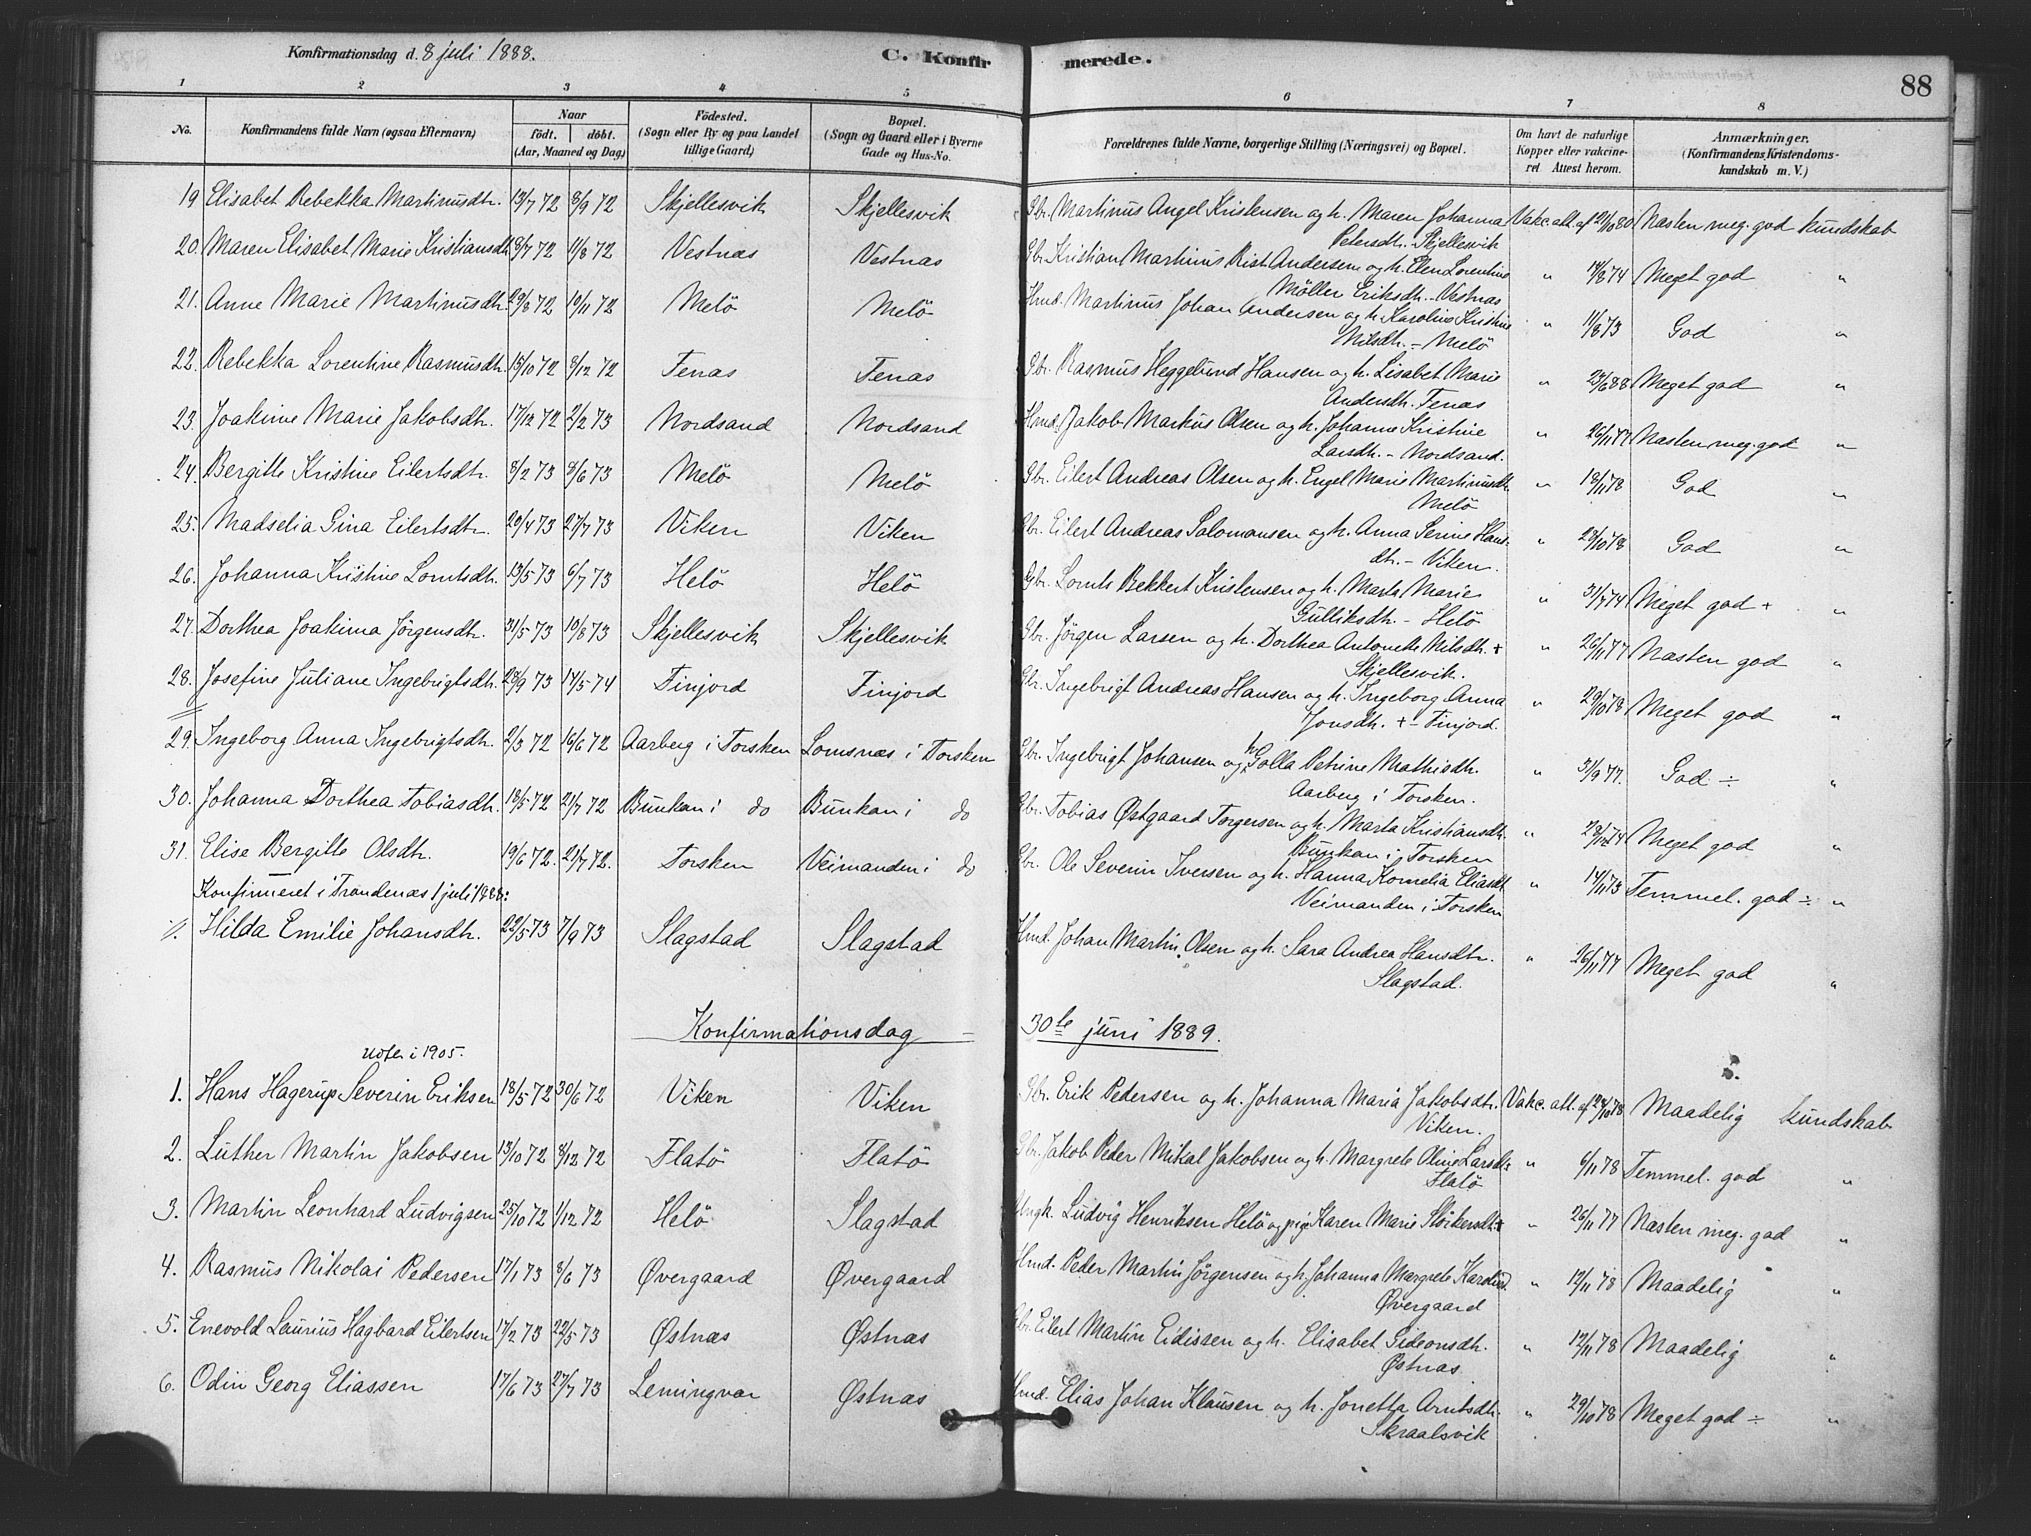 Konfirmationsdag d. 8 juli 1888. C. Konfirmerede. 88
1 2 3 4 5 6 7 8
No. Konfirmandens fulde Navn (ogsaa Efternavn) Naar født. døbt. (Aar, Maaned og Dag) Fødested. (Sogn eller By og paa Landet tillige Gaard) Bopæl. (Sogn og Gaard eller i Byerne Gade og Hus-No. Forældrenes fulde Navne, borgerlige Stilling (Næringsvei) og Bopæl. Om havt de naturlige Kopper eller vakcineret Attest herom. Anmærkninger. (Konfirmandens Kristendomskundskab m. V.)
19 Elisabet Rebekka Martinusdtr. 13/7 72 8/9 72 Skjellesvik Skjellesvik Gbr. Martinus Angel Kristensen og h. Maren Johanna Vakc. att. af 12/10 80 Næsten meg. god kundskab
Petersdtr. Skjellesvik
20. Maren Elisabet Marie Kristiansdtr 8/7 72 11/8 72 Vestnæs Vestnæs Gbr. Kristian Martinus Rist Andersen og h. Elen Lorentine " 14/8 74 Meget god "
Møller Eriksdtr. - Vestnæs
21. Anne Marie Martinusdtr. 29/8 72 10/11 72 Melö Melö Hmd. Martinus Johan Andersen og h. Karolius Kristine " 11/8 73 God "
Nilsdtr. - Melö
22. Rebekka Lorentine Rasmusdtr. 15/10 72 8/12 72 Tenæs Tenæs Gbr. Rasmus Heggelund Hansen og h. Lisabet Marie " 23/6 88 Meget god "
Andersdtr. Tenæs
23. Joakime Marie Jakobsdtr. 17/12 72 2/2 73 Nordsand Nordsand Hmd. Jakob Markus Olsen og h. Johanne Kristine " 26/11 77 Næsten meg. god "
Larsdtr. - Nordsand.
24. Bergitte Kristine Eilertsdtr. 8/2 73 8/6 73 Melö Melö Gbr. Eilert Andreas Olsen og h. Engel Marie Martinusdtr. " 18/11 78 God "
Melö
25. Madselia Gina Eilertsdtr. 20/4 73 27/7 73 Viken Viken Gbr. Eilert Andreas Salomonsen og h. Anna Serine Hans- " 28/10 78 God "
dtr. - Viken.
26. Johanna Kristine Lorntsdtr. 13/5 73 6/7 73 Helö Helö Gbr. Lornts Bekkert Kristensen og h. Marta Marie " 31/7 74 Meget god + "
Gulliksdtr. - Helö
27. Dorthea Joakima Jörgensdtr. 31/5 73 10/8 73 Skjellesvik Skjellesvik Gbr. Jörgen Larsen og h. Dorthea Antonette Nilsdtr. + " 26/11 77 Næsten god "
Skjellesvik.
28. Josefine Juliane Ingebrigtsdtr. 28/9 73 17/5 74 Finjord Finjord Gbr. Ingebrigt Andreas Hansen og h. Ingeborg Anna " 29/10 78 Meget god "
Jonsdtr. + - Finjord.
29. Ingeborg Anna Ingebrigtsdtr. 2/3 72 16/6 72 Aarberg i Torsken Lomsnæs i Torsken Gbr. Ingebrigt Johansen og h. Golla Petrine Mathisdtr. " 31/9 77. God ÷ "
Aarberg i Torsken.
30. Johanna Dorthea Tobiasdtr. 18/5 72 21/7 72 Bunkan i do Bunkan i do Gbr. Tobias Østgaard Torgersen og h. Marta Kristiansdtr. " 28/12 74 Meget god "
Bunkan i Torsken
31. Elise Bergitte Olsdtr. 19/6 72. 21/7 72. Torsken Veimanden i do Gbr. Ole Severin Iversen og h. Hanna Kornelia Eliasdt " 14/11 73 Temmel. god ÷ "
Veimanden i Torsken
Konfirmeret i Trondenæs 1 juli 1888:
1. Hilda Emilie Johansdtr. 22/5 73 7/9 73 Slagstad Slagstad Hmd. Johan Martin Olsen og h. Sara Andrea Hansdtr. " 26/11 77 Meget god "
Slagstad.
Konfirmationsdag 30te juni 1889.
1. Hans Hagerup Severin Eriksen 18/5 72 30/6 72 Viken Viken Gbr. Erik Pedersen og h. Johanna Maria Jakobsdtr. Vakc. att. af 24/10 78 Maadelig kundskab
Viken.
2. Luther Martin Jakobsen 13/10 72 8/12 72 Flatö Flatö Gbr. Jakob Peder Mikal Jakobsen og h. Margrete Oline Larsdtr " 6/11 78 Temmel. god "
Flatö
3. Martin Leonhard Ludvigsen 25/10 72 1/12 72 Helö Slagstad Ungk. Ludvig Henriksen Helö og pige Karen Marie " 26/11 77 Næsten meg. god "
4. Rasmus Nikolai Pedersen 17/1 73 8/6 73 Øvergaard Øvergaard Hmd. Peder Martin Jörgensen og h. Johanna Margrete " 12/11 78 Maadelig "
Øvergaard
5. Enevold Laurius Hagbard Eilertsen 17/2 73 22/5 73 Østnæs Østnæs Gbr. Eilert Martin Eidissen og h. Elisabet Gideonsdtr. " 12/11 78 Maadelig "
Østnæs
6. Odin Georg Eliassen 17/6 73 27/7 73 Lemingvær Østnæs Hmd. Elias Johan Klausen og h. Jonetta Arntsdtr. " 29/10 78 Meget god ÷ "
Skraalsvik